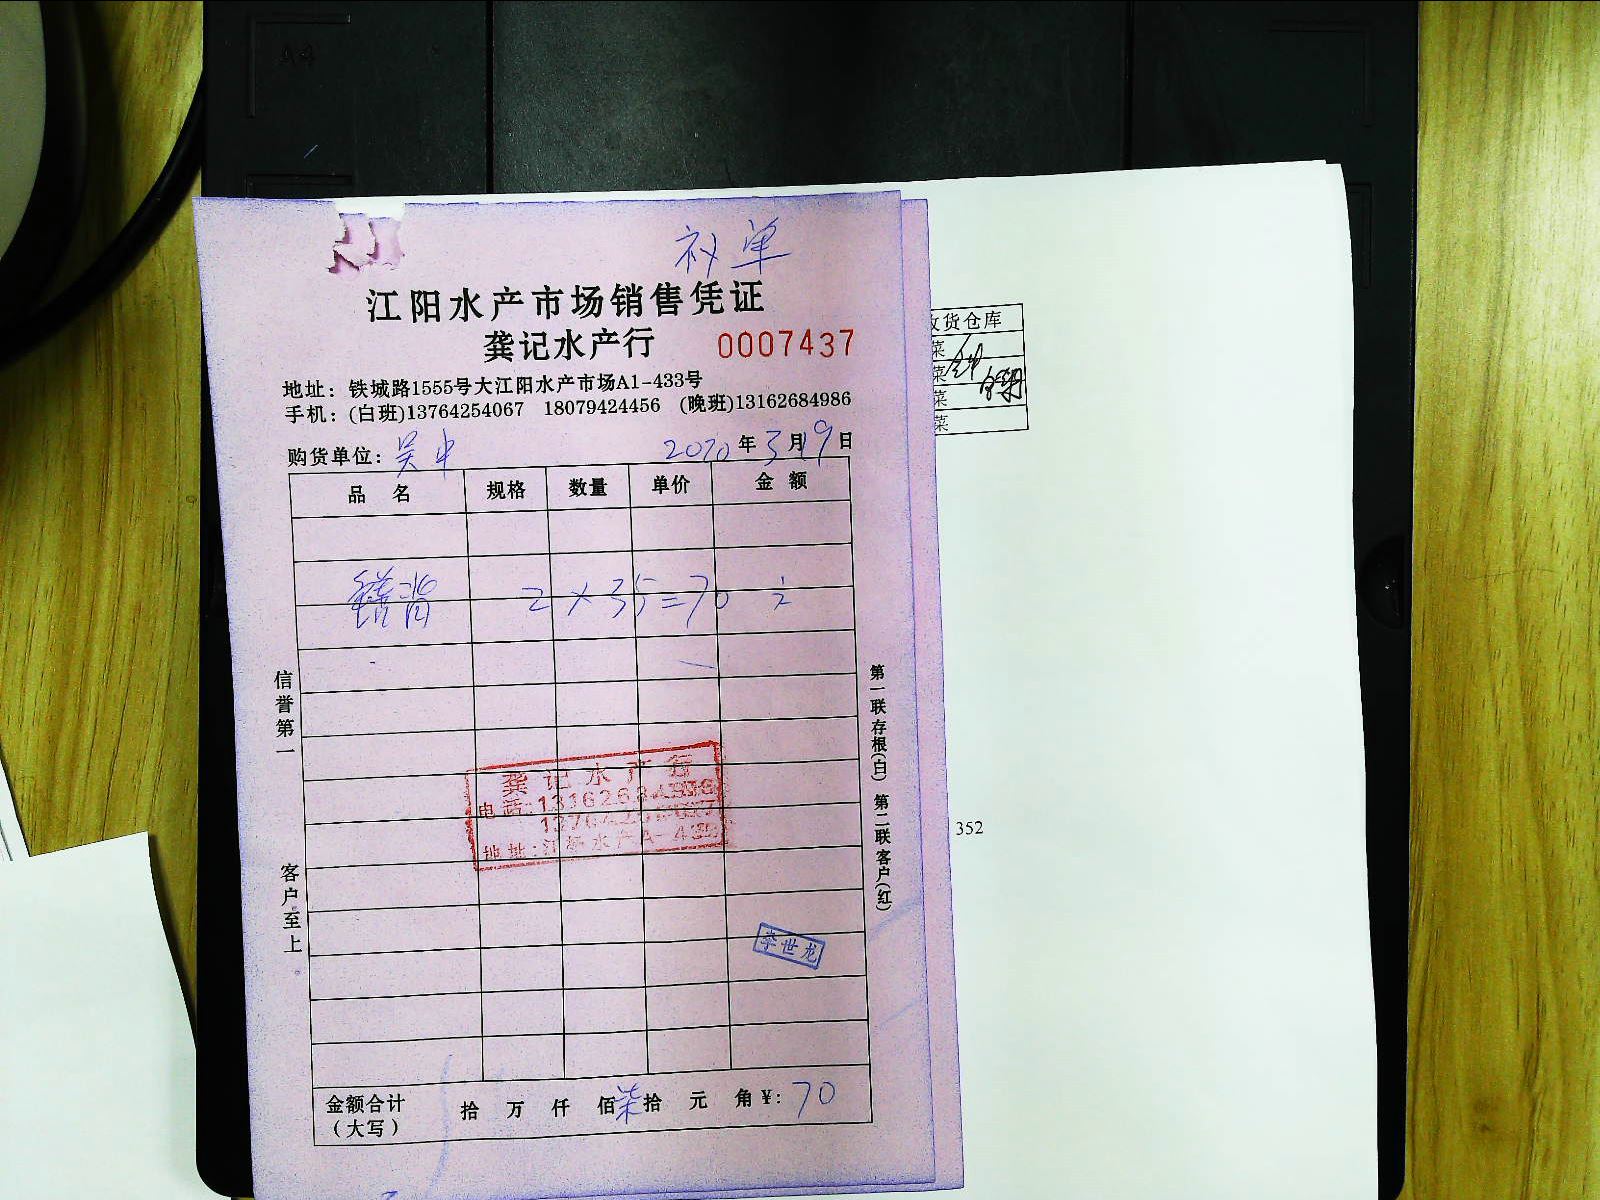 A4
补单
江阳水产市场销售凭证
龚记水产行 0007437
地址：铁城路1555号大江阳水产市场A1-433号
手机：(白班)13764254067 18079424456 (晚班)13162684986
购货单位：吴中 2020年3月19日
品名 规格 数量 单价 金额
鳝背 2×35=70
信誉第一
客户至上
第一联存根(白) 第二联客户(红)
龚记水产行
电话:13162684986
13764254067
地址:江杨水产A-433
李世龙
金额合计 拾 万 仟 佰 柒拾 元 角 ¥: 70
（大写）
收货仓库
菜
菜
菜
菜
352